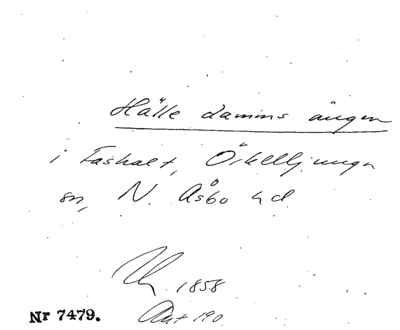 Hälle damms ängen
i Fashalt, Örkelljunga
sn, N. Åsbo hd.
1858
Akt 190
Nr 7479.